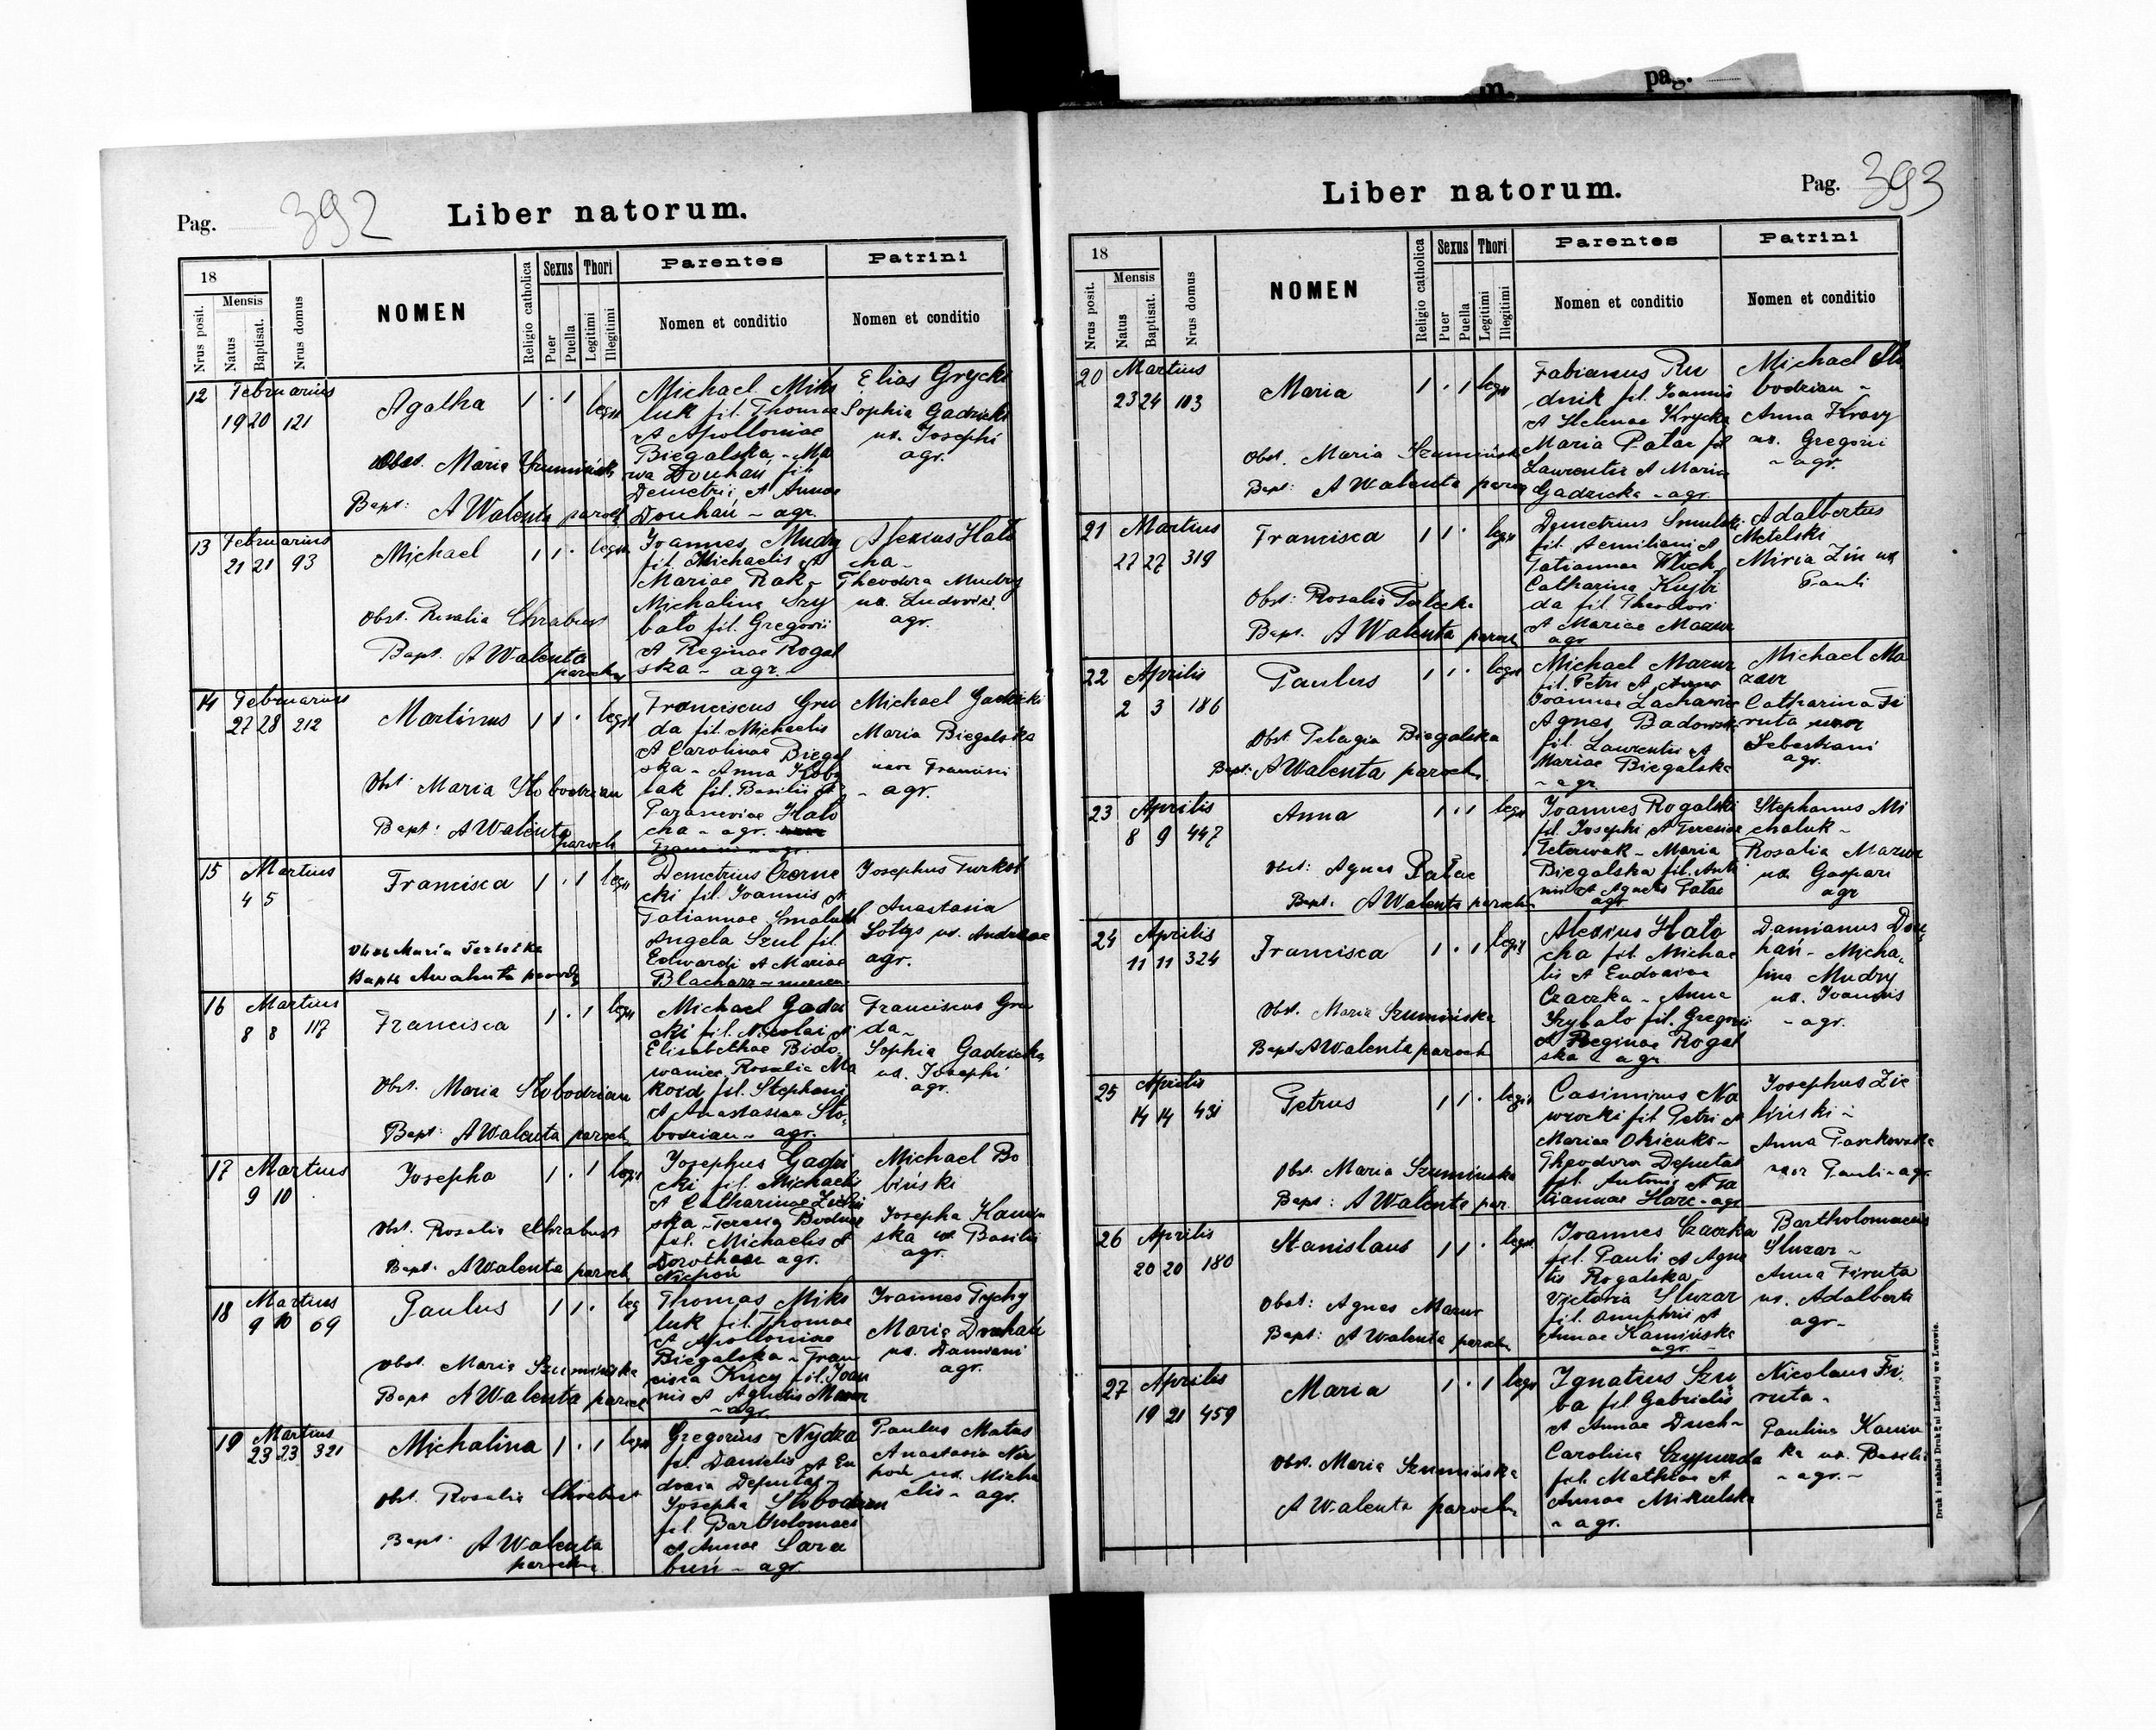 pag.
Pag. 392
Liber natorum.
18
Nrus posit.
Mensis
Natus
Baptisat.
Nrus domus
NOMEN
Religio catholica
Sexus
Puer
Puella
Thori
Legitimi
Illegitimi
Parentes
Nomen et conditio
Patrini
Nomen et conditio
12 Februarius
19 20 121
Agatha
1 · 1 legit
Obst. Maria Szumińska
Bapt: A Walenta paroch
Michael Mik
luk fil. Thomae
et Apolloniae
Biegalska - Ma
Douhań fil
Demetrii et Annae
Douhań - agr.
Elias Grycki
Sophia Gadzicki
ux. Josephi
agr.
13 Februarius
21 21 93
Michael
1 1 · legit
Obst. Rosalia Chrabust
Bapt. A Walenta
paroch
Joannes Mudry
fil. Michaelis et
Mariae Rak -
Michalina Szy
bato fil. Gregorii
et Reginae Rogal
ska - agr.
Alexius Hato
cha -
Theodora Mudry
ux. Ludovici
agr.
14 Februarius
27 28 212
Martinus
1 1 · legit
Obst Maria Slobodzian
Bapt: A Walenta
paroch
Franciscus Gru
da fil. Michaelis
et Carolinae Biegal
ska - Anna
lak fil. Basilii et
Parasceviae Hato
cha - agr.
Michael Gadzicki
Maria Biegalska
uxor Francisci
- agr.
15 Martius
4 5
Francisca
1 · 1 legit
Obst Maria
Bapt A Walenta paroch
Demetrius Czerne
cki fil. Joannis et
Tatiannae
Angela Szul fil.
Edwardi et Mariae
Blacharz -
Josephus
Anastasia
Sottys ux. Andreae
agr.
16 Martius
8 8 117
Francisca
1 · 1 legit
Obst. Maria Slobodzian
Bapt: A Walenta paroch
Michael Gadzi
cki fil. Nicolai et
Elisabethae Bido
waniec Rosalia Ma
koid fil. Stephani
et Anastasiae Slo
bodzian - agr.
Franciscus Gru
da -
Sophia Gadzicka
ux. Josephi
agr.
17 Martius
9 10
Josepha
1 · 1 legit
Obst. Rosalia Chrabust
Bapt. A Walenta paroch
Josephus Gadzi
cki fil. Michaelis
et Catharinae Zieliń
ska - Teresia Bodnar
fil. Michaelis et
Dorotheae agr.
Niepoń
Michael Bo
biński
Josepha Kamiń
ska ux Basilii
agr.
18 Martius
9 10 69
Paulus
1 1 · leg
Obst. Maria Szumińska
Bapt A Walenta paroch
Thomas Mik
luk fil. Thomae
et Apolloniae
Biegalska - Fran
cisca Kucy fil. Joan
nis et Agnetis Mazur
- agr.
Joannes Tychy
Maria Douhań
ux. Damiani
agr.
19 Martius
23 23 321
Michalina
1 · 1 legit
Obst. Rosalia Chrabust
Bapt. A Walenta
paroch
Gregorius Nydza
fil. Danielis et Eu
doxia Deputat -
Josepha Slobodzian
fil. Bartholomaei
et Annae Cara
buń - agr.
Paulus Matus
Anastasia Nie
poń ux. Micha
elis - agr.
Liber natorum.
Pag. 393
18
Nrus posit.
Mensis
Natus
Baptisat.
Nrus domus
NOMEN
Religio catholica
Sexus
Puer
Puella
Thori
Legitimi
Illegitimi
Parentes
Nomen et conditio
Patrini
Nomen et conditio
20 Martius
23 24 103
Maria
1 · 1 legit
Obst. Maria Szumińska
Bapt: A Walenta paroch
Fabianus Ru
dnik fil. Joannis
et Helenae Krycka
Maria Patac fil
Laurentii et Maria
Gadzicka - agr.
Michael Slo
bodzian -
Anna Krasy
ux. Gregorii
- agr.
21 Martius
27 27 319
Francisca
1 1 · legit
Obst: Rosalia
Bapt. A Walenta paroch
Demetrius Smulski
fil. Aemiliani et
Tatiannae Wloch
Catharina Kujbi
da fil. Theodori
et Mariae Mazur
agr
Adalbertus
Metelski
Maria Zin ux
Pauli
22 Aprilis
2 3 186
Paulus
1 1 · legit
Obst Pelagia Biegalska
Bapt: A Walenta paroch
Michael Mazur
fil. Petri et
Joannae Zacharów
Agnes Badowska
fil. Laurentii et
Mariae Biegalska
- agr.
Michael Ma
zur
Catharina Fi
ruta uxor
Sebastiani
agr.
23 Aprilis
8 9 447
Anna
1 · 1 legit
Obst: Agnes Patac
Bapt. A Walenta paroch
Joannes Rogalski
fil. Josephi et Teresiae
Teterwak - Maria
Biegalska fil. Anto
nii et Agnetis Patac
agr
Stephanus Mi
chaluk -
Rosalia Mazur
ux Gaspari
agr
24 Aprilis
11 11 324
Francisca
1 · 1 legit
Obst. Maria Szumińska
Bapt A Walenta paroch
Alexius Hato
cha fil. Michae
lis et Eudoxiae
Czaczka - Anna
Szybato fil. Gregorii
et Reginae Rogal
ska - agr
Damianus Dou
hań - Micha
lina Mudry
ux. Joannis
- agr.
25 Aprilis
14 14 431
Petrus
1 1 · legit
Obst. Maria Szumińska
Bapt: A Walenta par.
Casimirus Na
wrocki fil Petri et
Mariae Okienko -
Theodora Deputat
fil. Antonii et Ta
tiannae Harc - agr
Josephus Zie
liński -
Anna Paszkowska
uxor Pauli - agr.
26 Aprilis
20 20 180
Stanislaus
1 1 · legit
Obst: Agnes Mazur
Bapt: A Walenta paroch
Joannes Czaczka
fil. Pauli et Agne
tis Rogalska
Victoria Sluzar
fil. Onuphrii et
Annae Kamińska
agr -
Bartholomaeus
Sluzar -
Anna Firuta
ux. Adalberti
agr -
27 Aprilis
19 21 459
Maria
1 · 1 legit
Obst. Maria Szumińska
A Walenta paroch
Ignatius Szu
ba fil Gabrielis
et Annae Duch -
Carolina Czypurda
fil. Mathiae et
Annae Mikulska
- agr.
Nicolaus Fi
ruta -
Paulina Kamiń
ka ux. Basilii
- agr. -